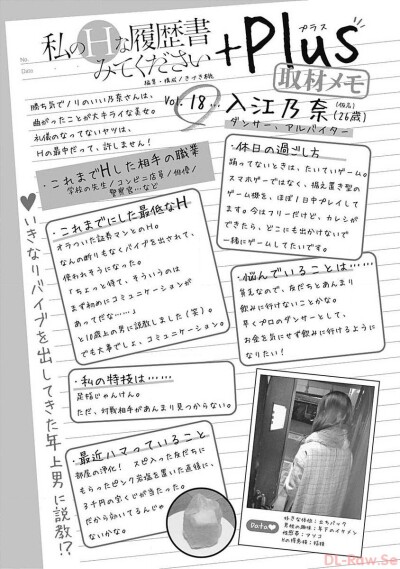 No.
Date
私のHな履歴書
みてください
+Plus
プラス
取材メモ
Vol.18… 入江乃奈(仮名)
(26歳)
ダンサー、アルバイター
勝ち気でノリのいい乃奈さんは、
曲がったことが大キライな美女。
礼儀のなってないヤツは、
Hの最中だって、許しません!
・これまでHした相手の職業
学校の先生/コンビニ店員/俳優/
警察官…など
・これまでにした最低なH
オラついた証券マンとのH。
なんの断りもなくバイブを出されて、
使われそうになった。
「ちょっと待て、そういうのは
まず初めにコミュニケーションが
あってだな……」
と10歳上の男に説教しました(笑)。
でも大事でしょ、コミュニケーション。
・私の特技は……
足指じゃんけん。
ただ、対戦相手があんまり見つからない。
・最近ハマっていること
部屋の浄化! スピ入った友だちに
もらったピンク岩塩を置いた直後に、
3千円の宝くじが当たった。
だから効いてるんじゃ
ないかな。
・休日の過ごし方
踊ってないときは、たいていゲーム。
スマホゲーではなく、据え置き型の
ゲーム機を、ほぼ1日中プレイして
ます。今はフリーだけど、カレシが
できたら、どこにも出かけないで
一緒にゲームしてたいです。
・悩んでいることは……
貧乏なので、友だちとあんまり
飲みに行けないことかな。
早くプロのダンサーとして、
お金を気にせず飲みに行けるように
なりたい!
♥いきなりバイブを出してきた年上男に説教!?
Data♥
好きな体位:立ちバック
DL-Raw.Se